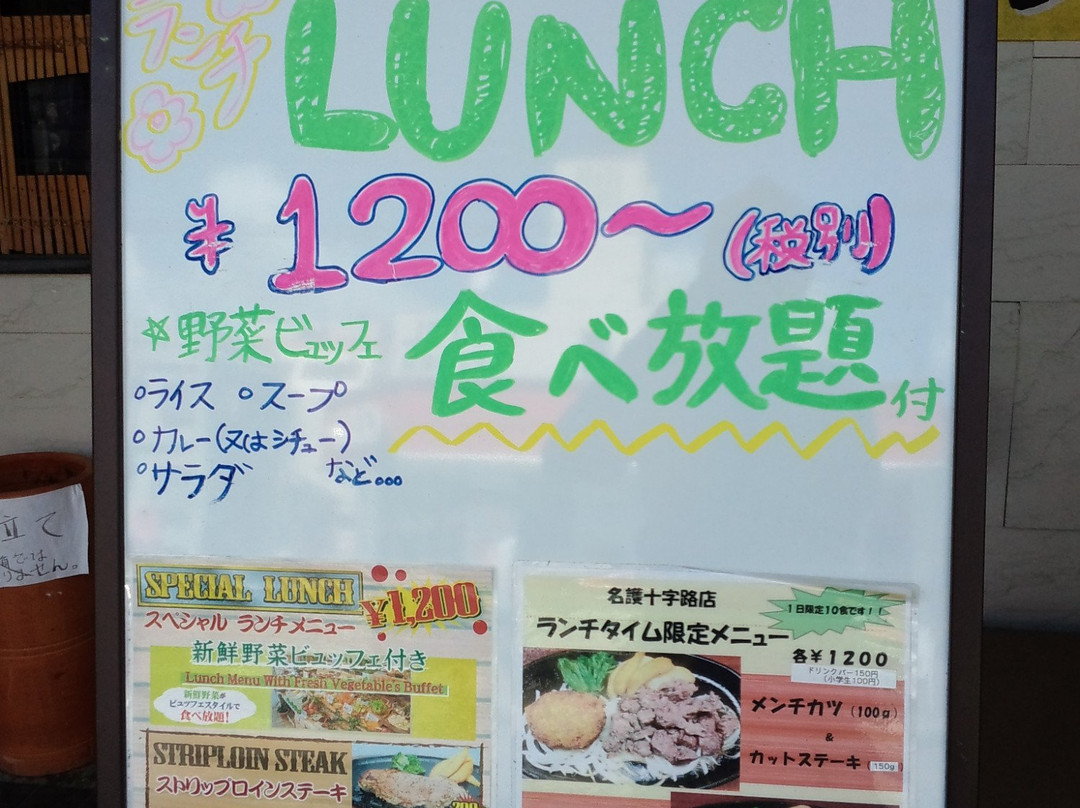 ランチ
LUNCH
¥1200～(税別)
☆野菜ビュッフェ 食べ放題付
○ライス ○スープ
○カレー(又はシチュー)
○サラダ など...
立て
ません。
SPECIAL LUNCH
¥1,200
スペシャル ランチメニュー
新鮮野菜ビュッフェ付き
Lunch Menu With Fresh Vegetable's Buffet
新鮮野菜が
ビュッフェスタイルで
食べ放題!
STRIPLOIN STEAK
ストリップロインステーキ
200
名護十字路店
1日限定10食です!!
ランチタイム限定メニュー
各¥1200
ドリンクバー150円
(小学生100円)
メンチカツ(100g)
&
カットステーキ(150g)